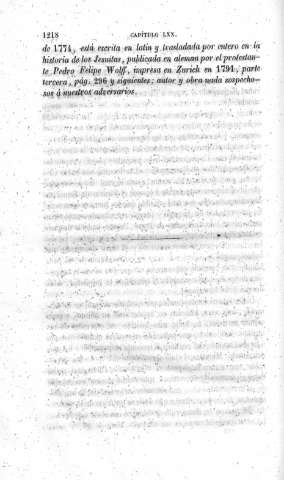 1218 CAPÍTULO LXX.
de 1774, está escrita en latin y trasladada por entero en la
historia de los Jesuitas, publicada en aleman por el protestan-
te Pedro Felipe Wolff, impresa en Zurich en 1791, parte
tercera, pág. 296 y siguientes; autor y obra nada sospecho-
sos á nuestros adversarios.